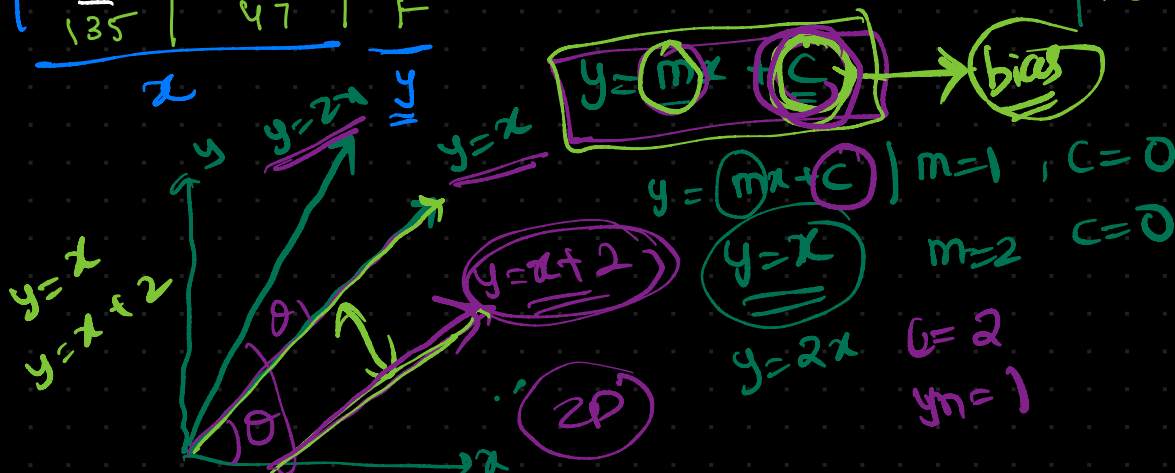 135 47 F
x y
y = mx + c bias
y
y=2x
y=x
y = mx + c ) m=1 , c=0
y=x
y=x+2
y=x+2
y=x
m=2 c=0
θ
y=2x
c=2
m=1
θ
2D
x